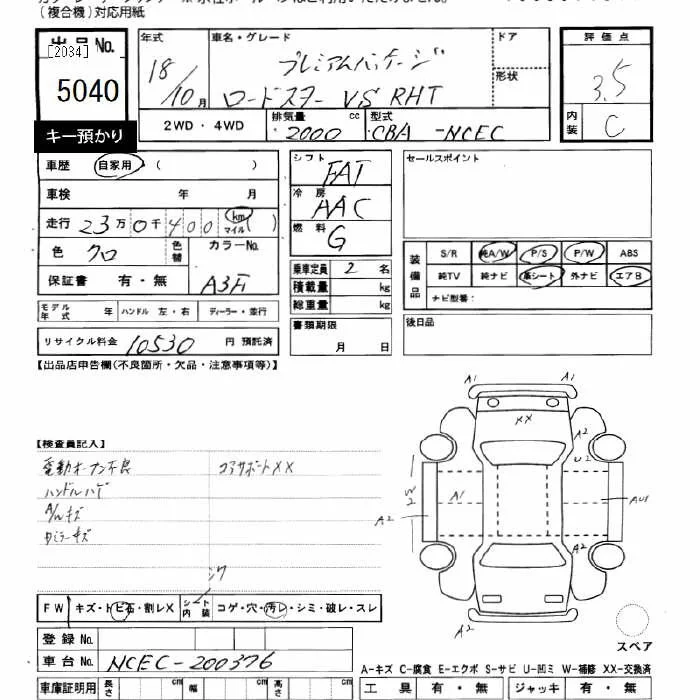 (複合機)対応用紙
出品No.
[2034]
5040
キー預かり
年式
18/10月
車名・グレード
プレミアムパッケージ
ロードスター VS RHT
ドア
形状
評価点
3.5
内装
C
2WD・4WD
排気量
2000 cc
型式
CBA-NCEC
車歴 自家用 ( )
車検 年 月
走行 23万0千400 km マイル ( )
色 クロ
色替
カラーNo.
A3F
保証書 有・無
シフト
FAT
冷房
AAC
燃料
G
乗車定員 2 名
積載量 kg
総重量 kg
書類期限
月 日
セールスポイント
装備品
S/R 純A/W P/S P/W ABS
純TV 純ナビ 革シート 外ナビ エアB
ナビ型番:
後日品
モデル年式 年 ハンドル 左・右 ディーラー・並行
リサイクル料金 10530 円 預託済
【出品店申告欄(不良箇所・欠品・注意事項等)】
【検査員記入】
電動オープン不良 コアサポートXX
ハンドルハゲ
A/Wキズ
カミラーキズ
シワ
FW キズ・トビ石・割レX シート内装 コゲ・穴・汚レ・シミ・破レ・スレ
登録No.
車台No. NCEC-200376
車庫証明用 長さ cm 幅 cm 高さ cm
A1
A1
XX
A2
U2
W2
A2
A1
AU1
A2
A2
スペア
A-キズ C-腐食 E-エクボ S-サビ U-凹ミ W-補修 XX-交換済
工具 有・無 ジャッキ 有・無